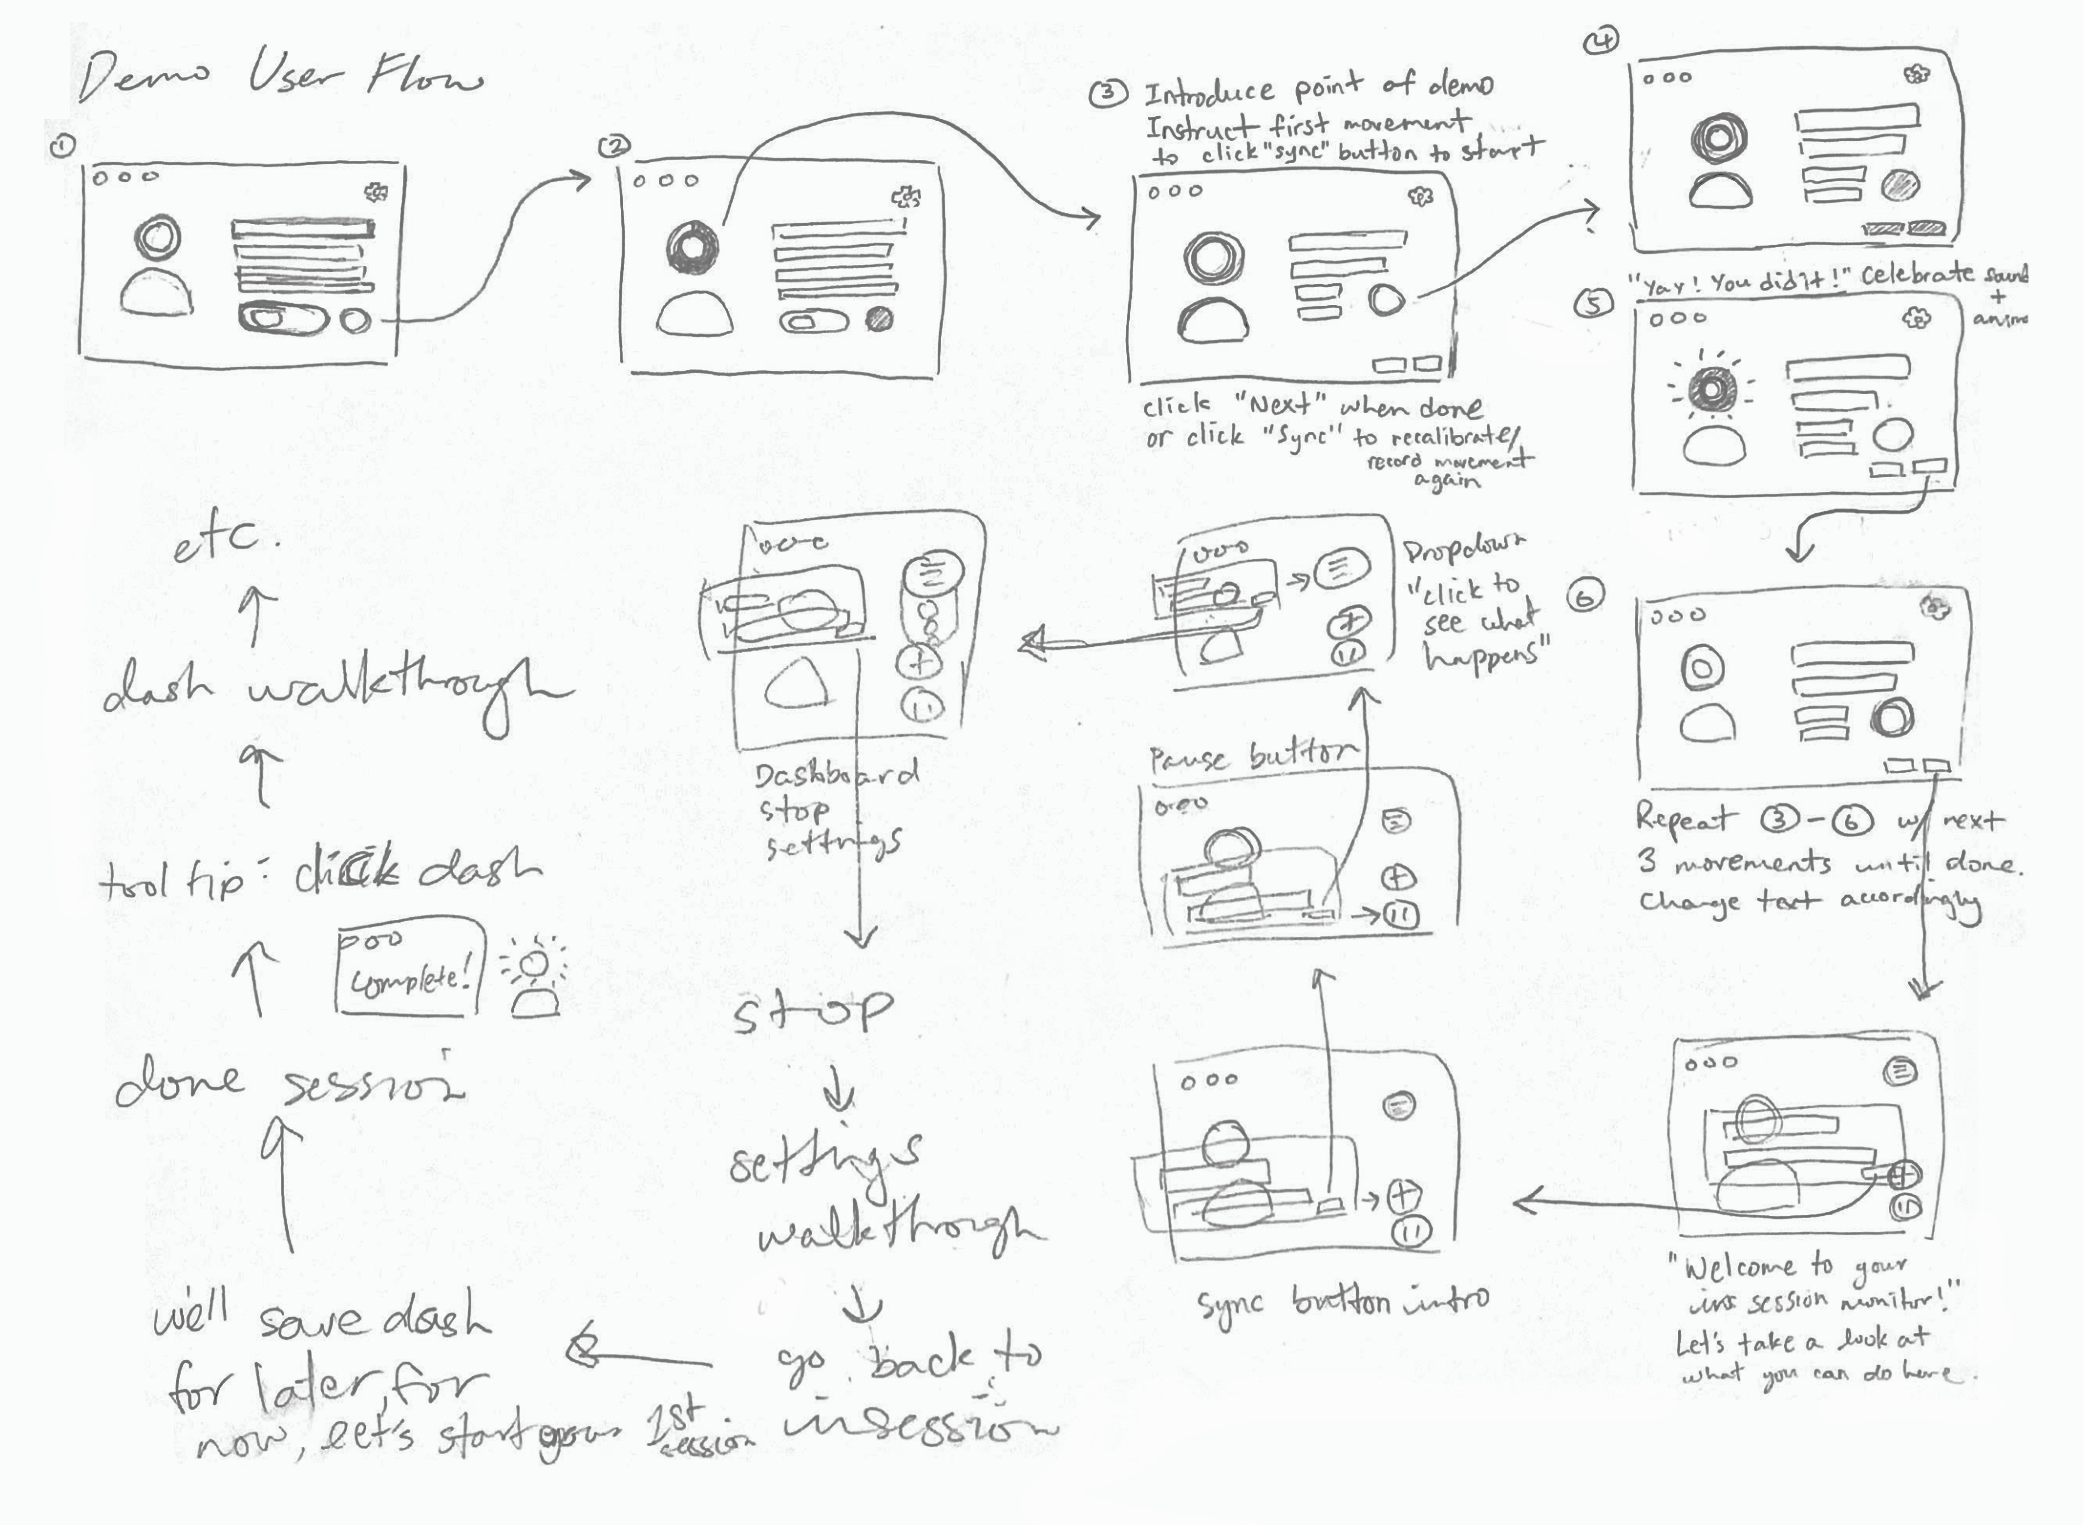 Demo User Flow
①
②
③ Introduce point of demo
Instruct first movement
to click "sync" button to start
click "Next" when done
or click "Sync" to recalibrate/
record movement
again
④
"Yay! You did it!" Celebrate sound
+
anim
⑤
⑥
Repeat ③-⑥ w/ next
3 movements until done.
Change text accordingly
"Welcome to your
session monitor!"
Let's take a look at
what you can do here.
Sync button intro
Pause button
Dropdown
"click to
see what
happens"
Dashboard
stop
settings
stop
settings
walkthrough
go back to
insession
we'll save dash
for later, for
now, let's start your 1st
session
done session
Complete!
tool tip: click dash
dash walkthrough
etc.